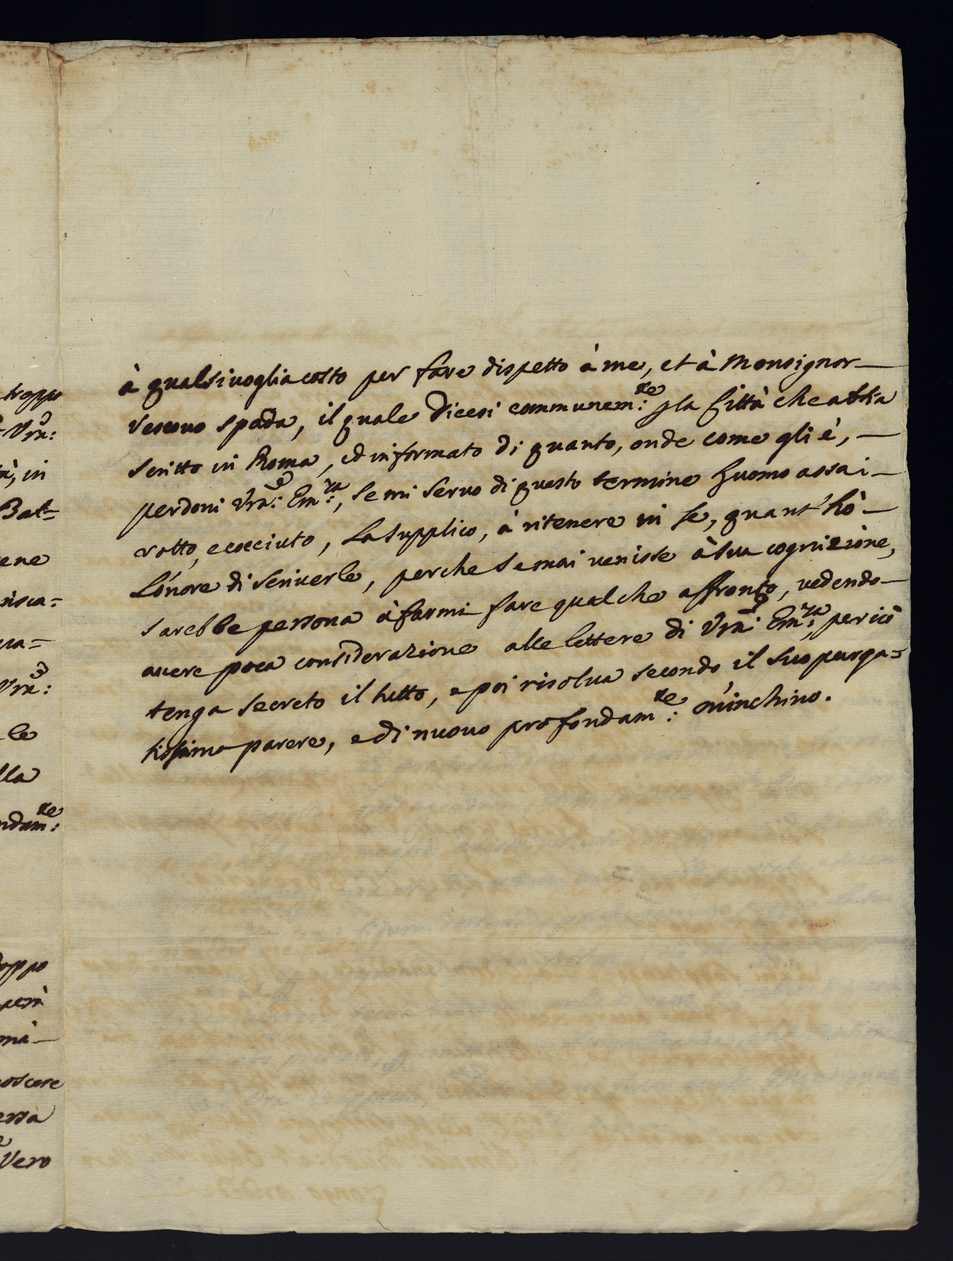 troppo
Vrã:
in
Bat=
ene
risca=
ua=
Vrã:
le
lla
ndam:te
oppo
però
mà—
noscere
erra
Vero
à qualsivoglia costo per fare dispetto à me, et à Monsignor—
Vescovo Spada, il quale dicesi communem:te p la Città che abbia
scritto in Roma, ed informato di quanto, onde come gli è,—
perdoni Vrã: Em:za, se mi servo di questo termine huomo assai—
rotto, e cocciuto, La supplico, à ritenere in se, quant'hò—
L'onore di scriverle, perche se mai venisse à sua cognizione,
sarebbe persona à farmi fare qualche affronto, vedendo—
avere poca considerazione alle lettere di Vrã: Em:za, per ciò
tenga secreto il tutto, e poi risolva secondo il suo purga=
tissimo parere, e di nuovo profondam:te m'inchino.